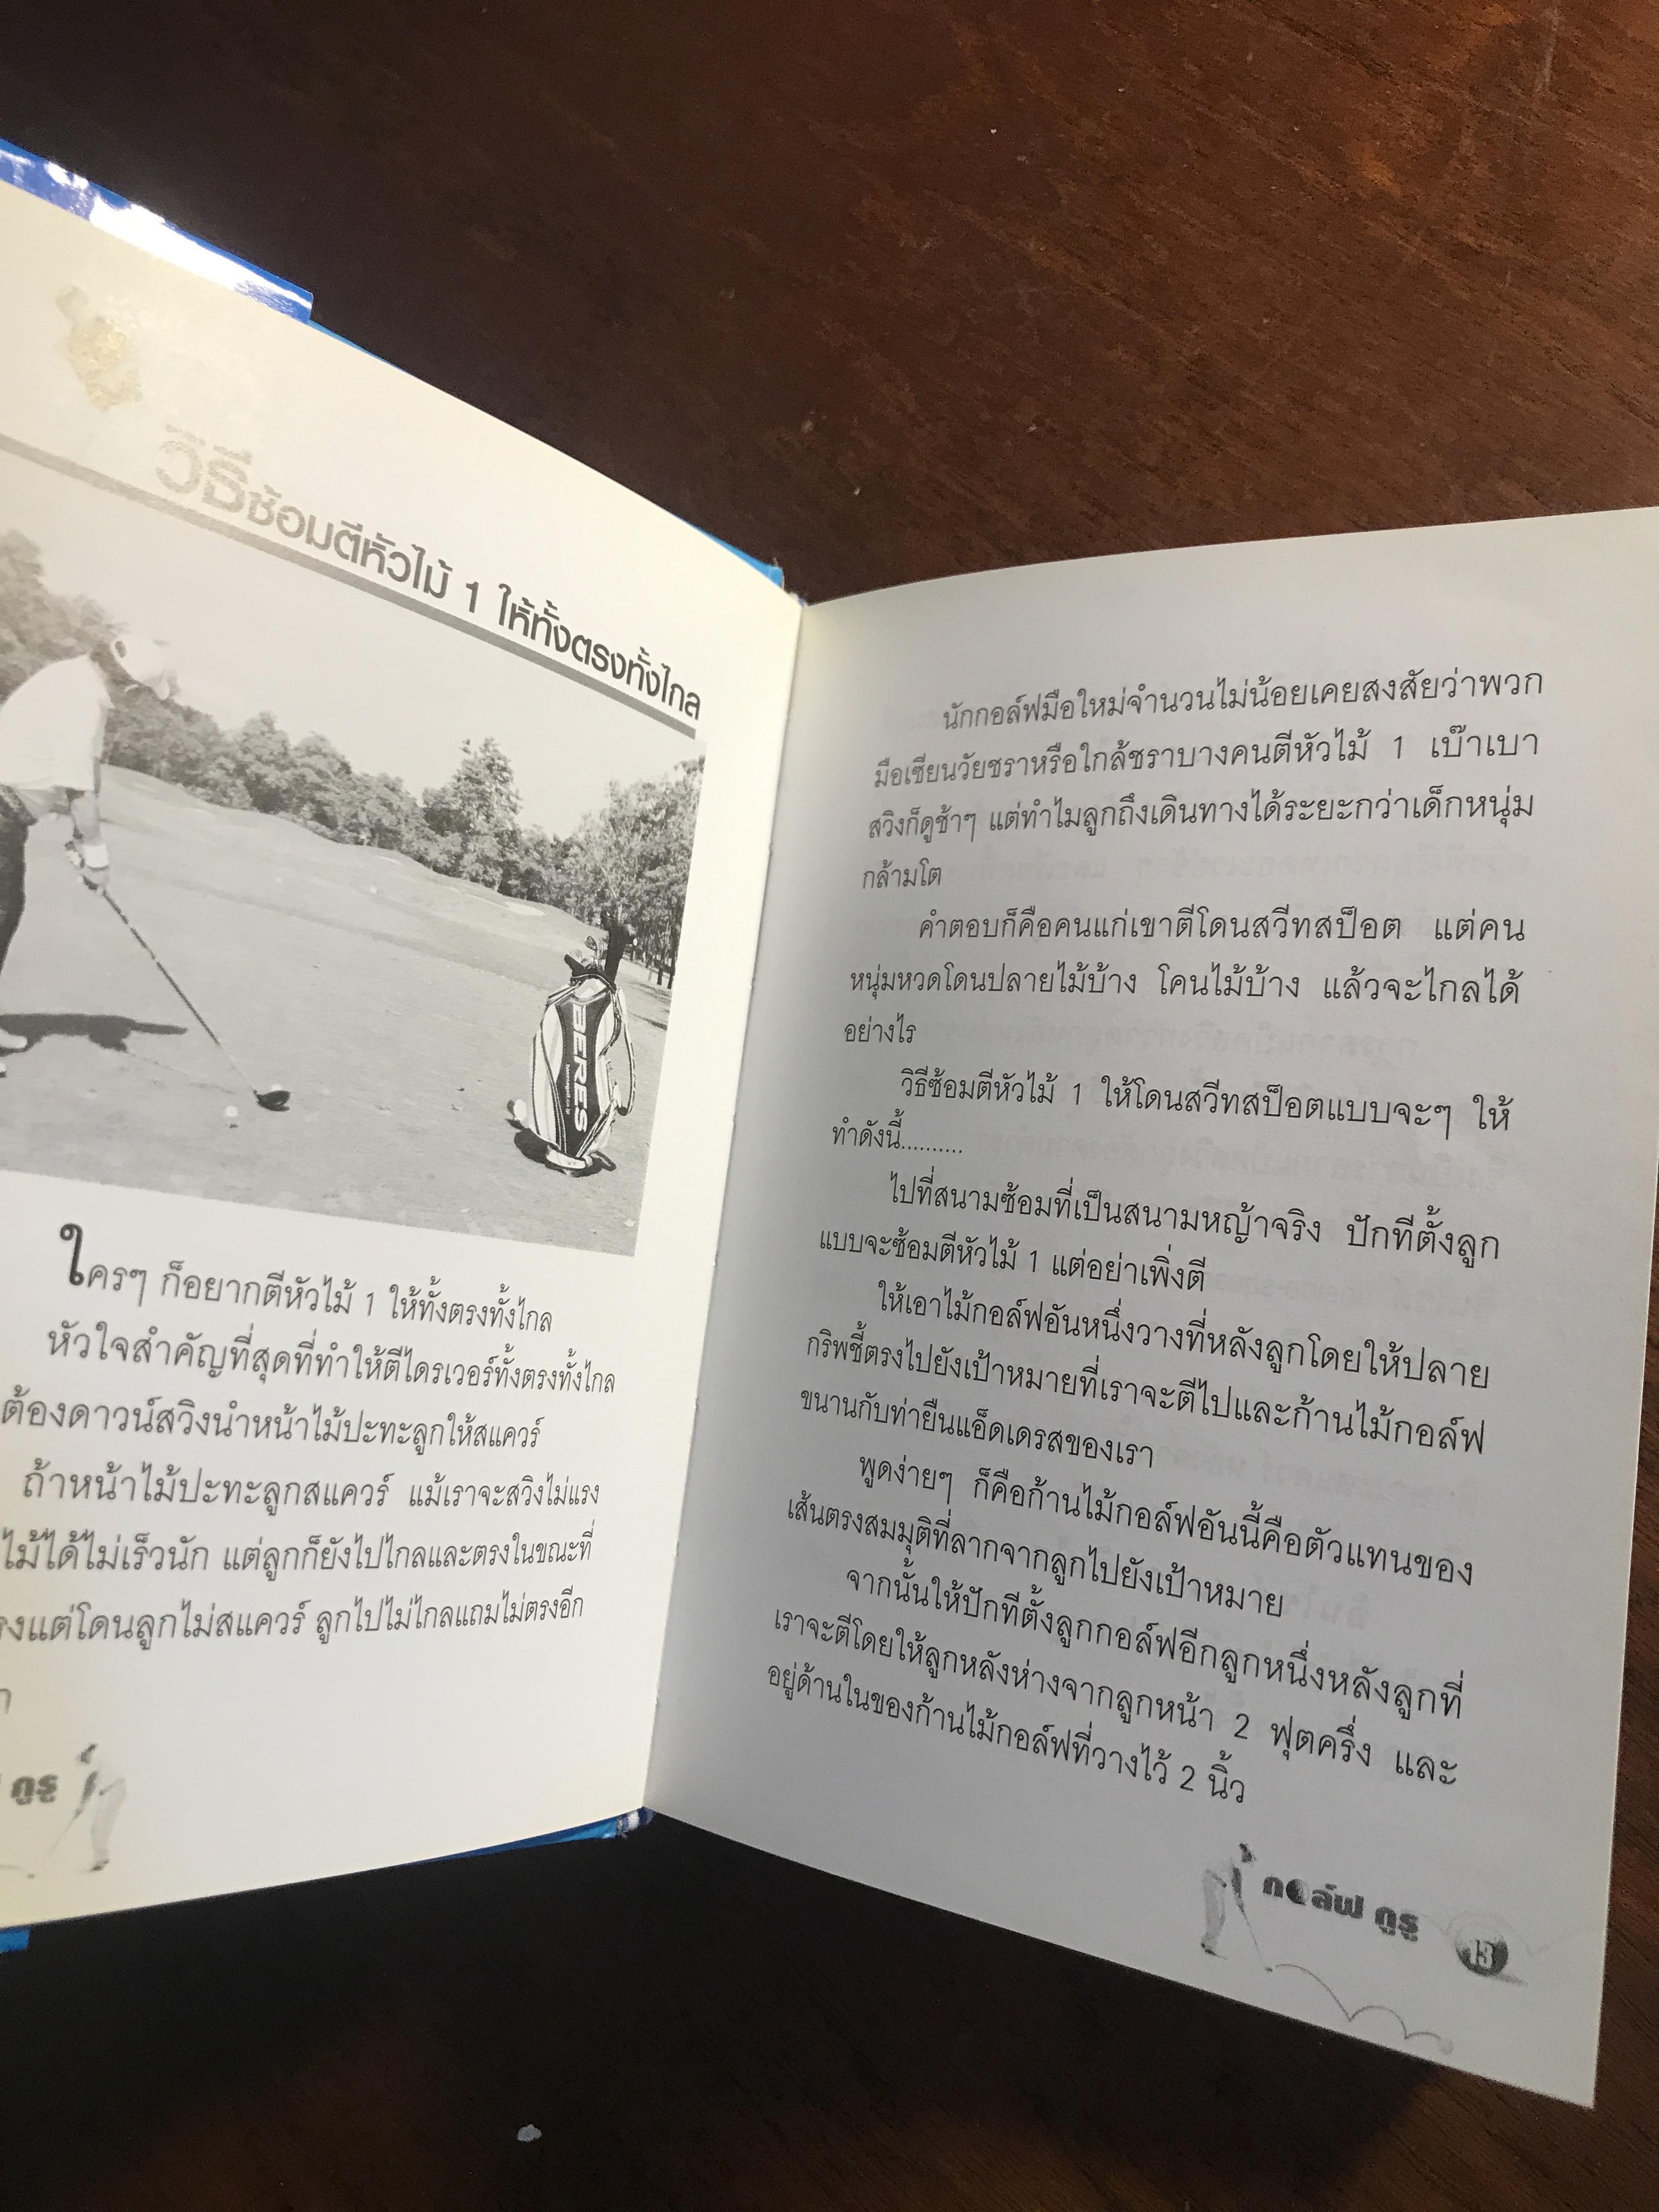 วิธีซ้อมตีหัวไม้ 1 ให้ทั้งตรงทั้งไกล
BERES
ใครๆ ก็อยากตีหัวไม้ 1 ให้ทั้งตรงทั้งไกล
หัวใจสำคัญที่สุดที่ทำให้ตีไดรเวอร์ทั้งตรงทั้งไกล
ต้องดาวน์สวิงนำหน้าไม้ปะทะลูกให้สแควร์
ถ้าหน้าไม้ปะทะลูกสแควร์ แม้เราจะสวิงไม่แรง
ไม้ได้ไม่เร็วนัก แต่ลูกก็ยังไปไกลและตรงในขณะที่
แต่โดนลูกไม่สแควร์ ลูกไปไม่ไกลแถมไม่ตรงอีก
กูรู
นักกอล์ฟมือใหม่จำนวนไม่น้อยเคยสงสัยว่าพวก
มือเซียนวัยชราหรือใกล้ชราบางคนตีหัวไม้ 1 เบ๊าเบา
สวิงก็ดูช้าๆ แต่ทำไมลูกถึงเดินทางได้ระยะกว่าเด็กหนุ่ม
กล้ามโต
คำตอบก็คือคนแก่เขาตีโดนสวีทสป็อต แต่คน
หนุ่มหวดโดนปลายไม้บ้าง โคนไม้บ้าง แล้วจะไกลได้
อย่างไร
วิธีซ้อมตีหัวไม้ 1 ให้โดนสวีทสป็อตแบบจะๆ ให้
ทำดังนี้..........
ไปที่สนามซ้อมที่เป็นสนามหญ้าจริง ปักทีตั้งลูก
แบบจะซ้อมตีหัวไม้ 1 แต่อย่าเพิ่งตี
ให้เอาไม้กอล์ฟอันหนึ่งวางที่หลังลูกโดยให้ปลาย
กริพชี้ตรงไปยังเป้าหมายที่เราจะตีไปและก้านไม้กอล์ฟ
ขนานกับท่ายืนแอ็ดเดรสของเรา
พูดง่ายๆ ก็คือก้านไม้กอล์ฟอันนี้คือตัวแทนของ
เส้นตรงสมมุติที่ลากจากลูกไปยังเป้าหมาย
จากนั้นให้ปักทีตั้งลูกกอล์ฟอีกลูกหนึ่งหลังลูกที่
เราจะตีโดยให้ลูกหลังห่างจากลูกหน้า 2 ฟุตครึ่ง และ
อยู่ด้านในของก้านไม้กอล์ฟที่วางไว้ 2 นิ้ว
กอล์ฟ กูรู 13